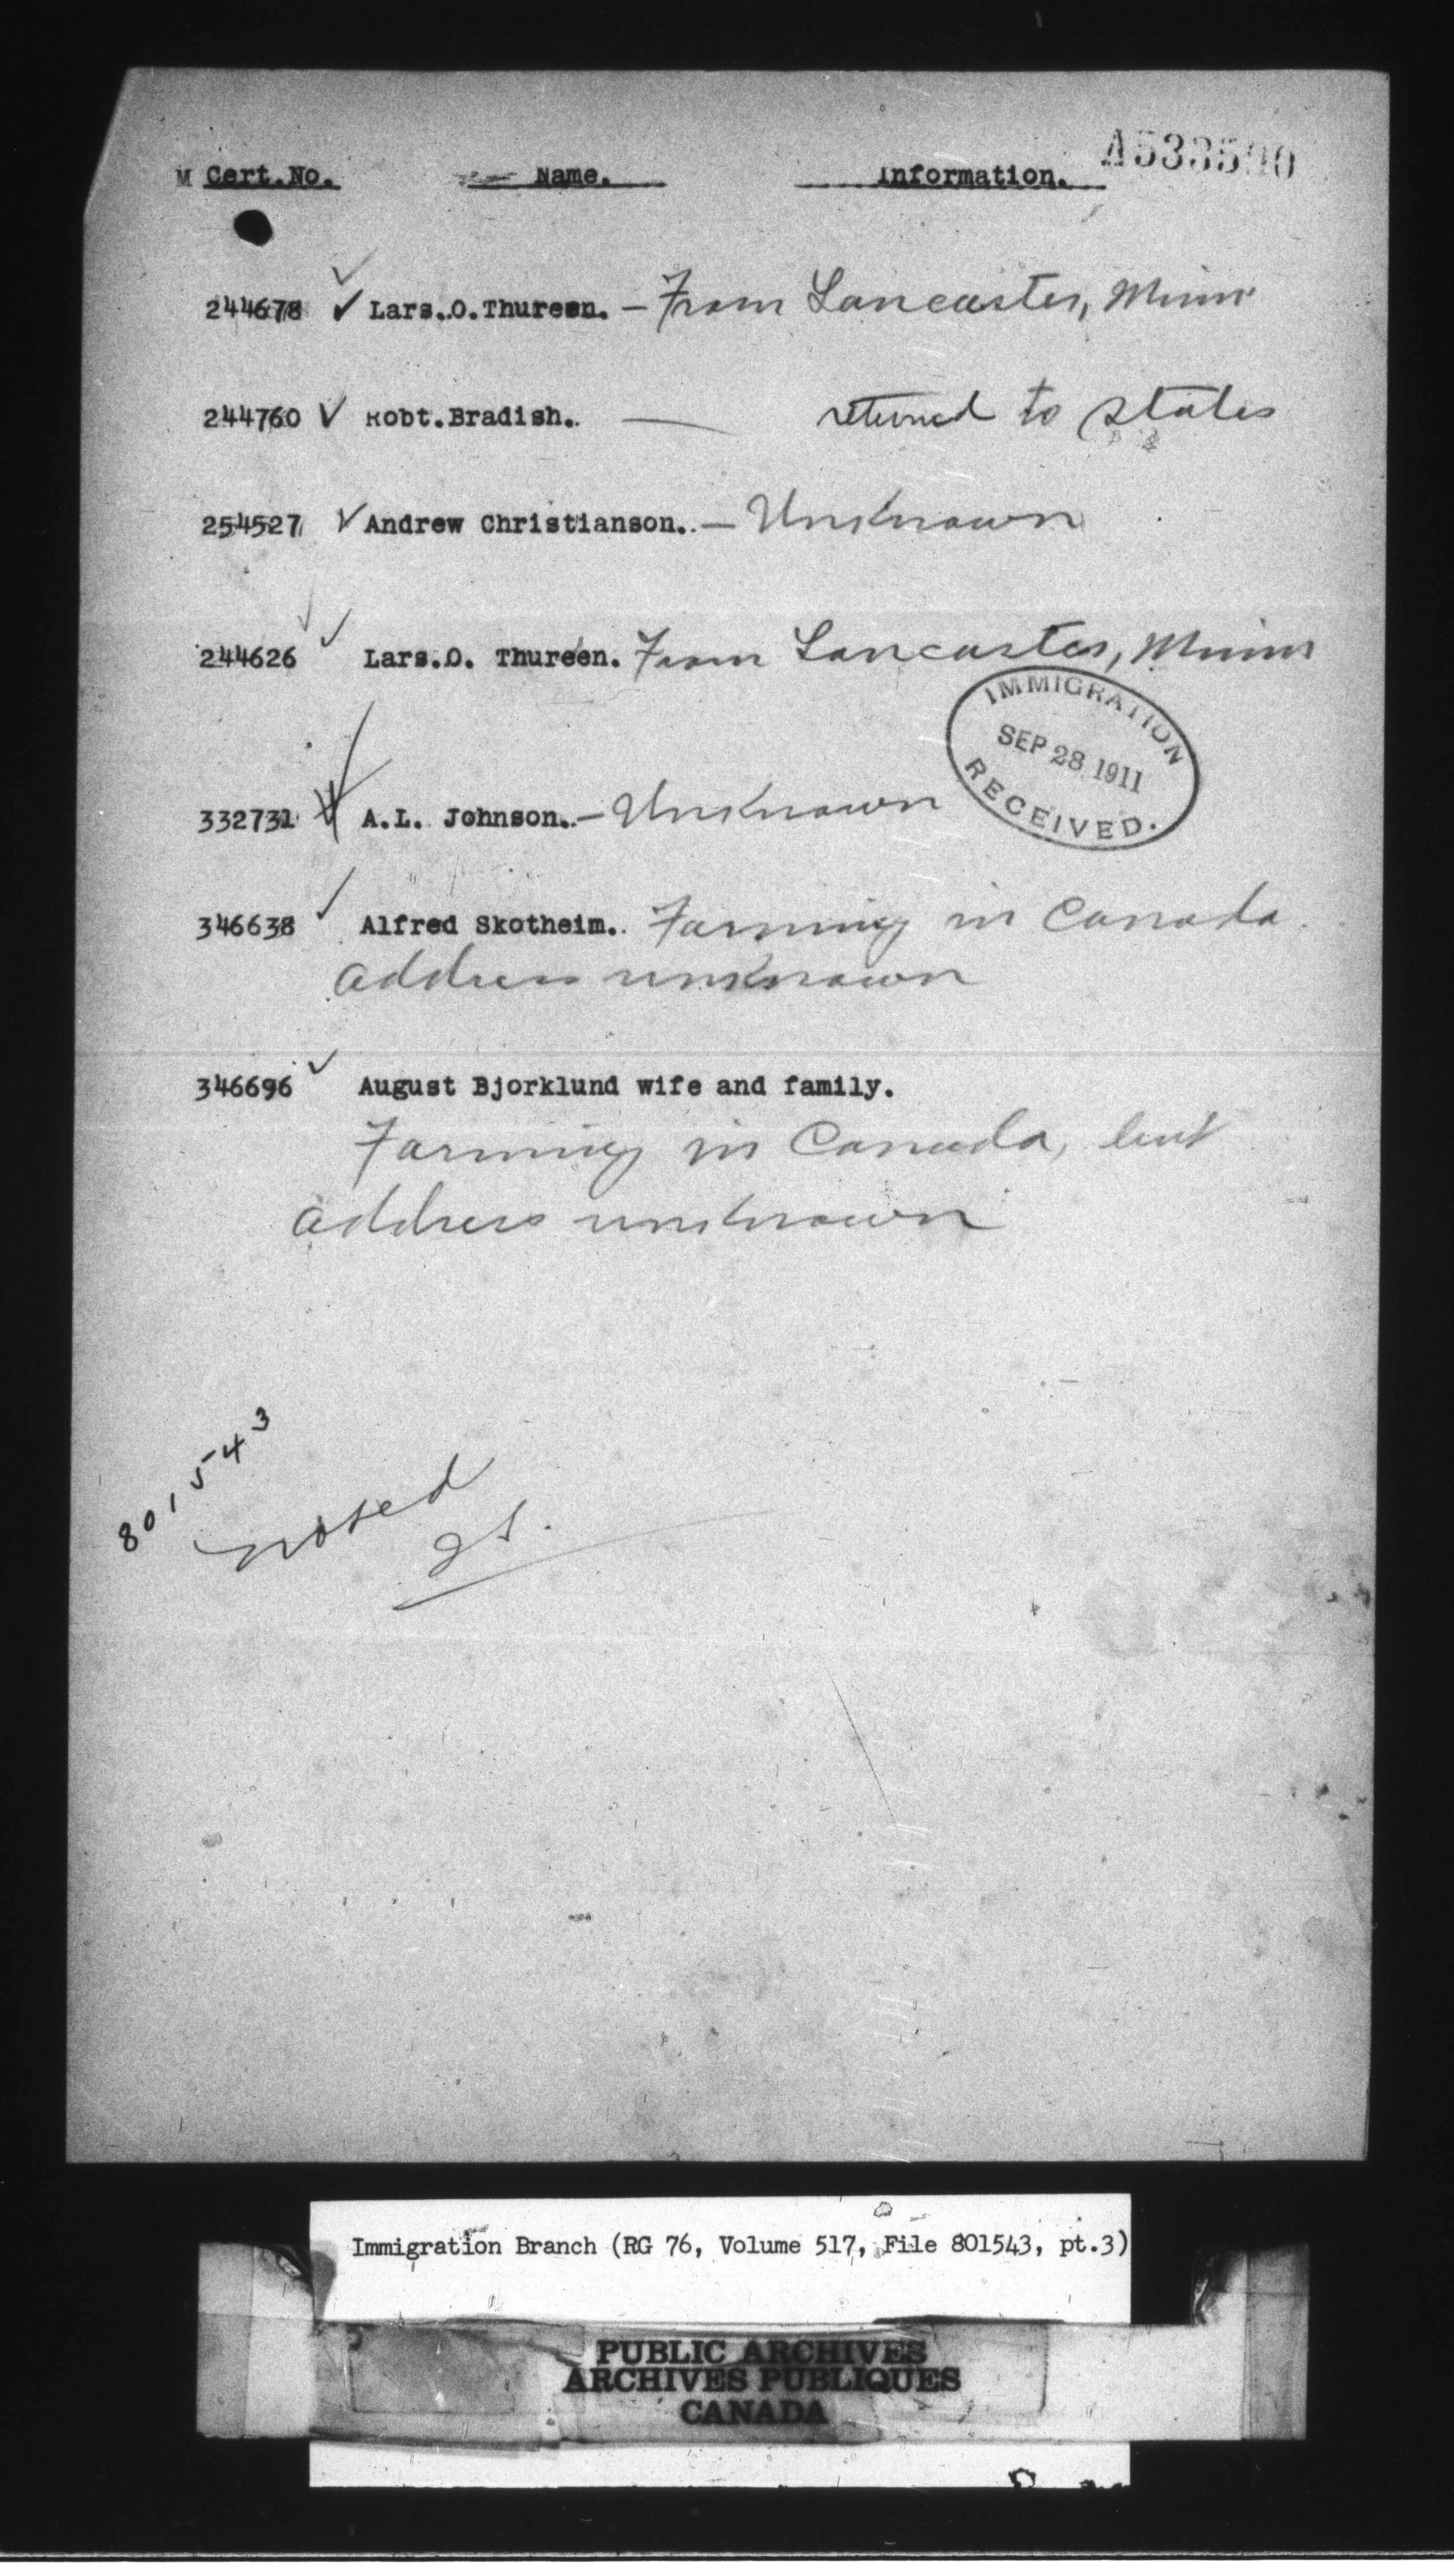 A533590
M Cert.No. Name. Information.
244678 ✓ Lars.O.Thureen. - From Lancaster, Minn
244760 ✓ Robt.Bradish. — returned to states
254527 ✓ Andrew Christianson. - Unknown
244626 ✓ Lars.O. Thureen. From Lancaster, Minn
IMMIGRATION
SEP 28 1911
RECEIVED.
332731 A.L. Johnson. - Unknown
346638 ✓ Alfred Skotheim. Farming in Canada
address unknown
346696 ✓ August Bjorklund wife and family.
Farming in Canada, but
address unknown
801543
noted
Immigration Branch (RG 76, Volume 517, File 801543, pt.3)
PUBLIC ARCHIVES
ARCHIVES PUBLIQUES
CANADA